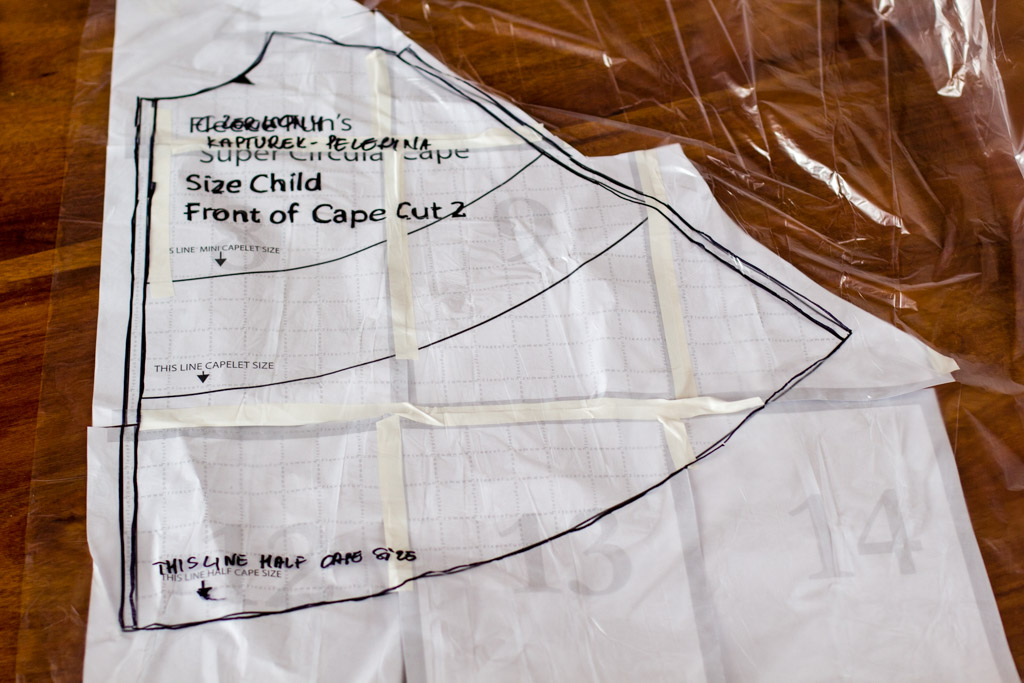 KAPTUREK - PELERYNA
Super Circular Cape
Size Child
Front of Cape Cut 2
9
S LINE MINI CAPELET SIZE
THIS LINE CAPELET SIZE
THIS LINE HALF CAPE SIZE
THIS LINE HALF CAPE SIZE
13
14